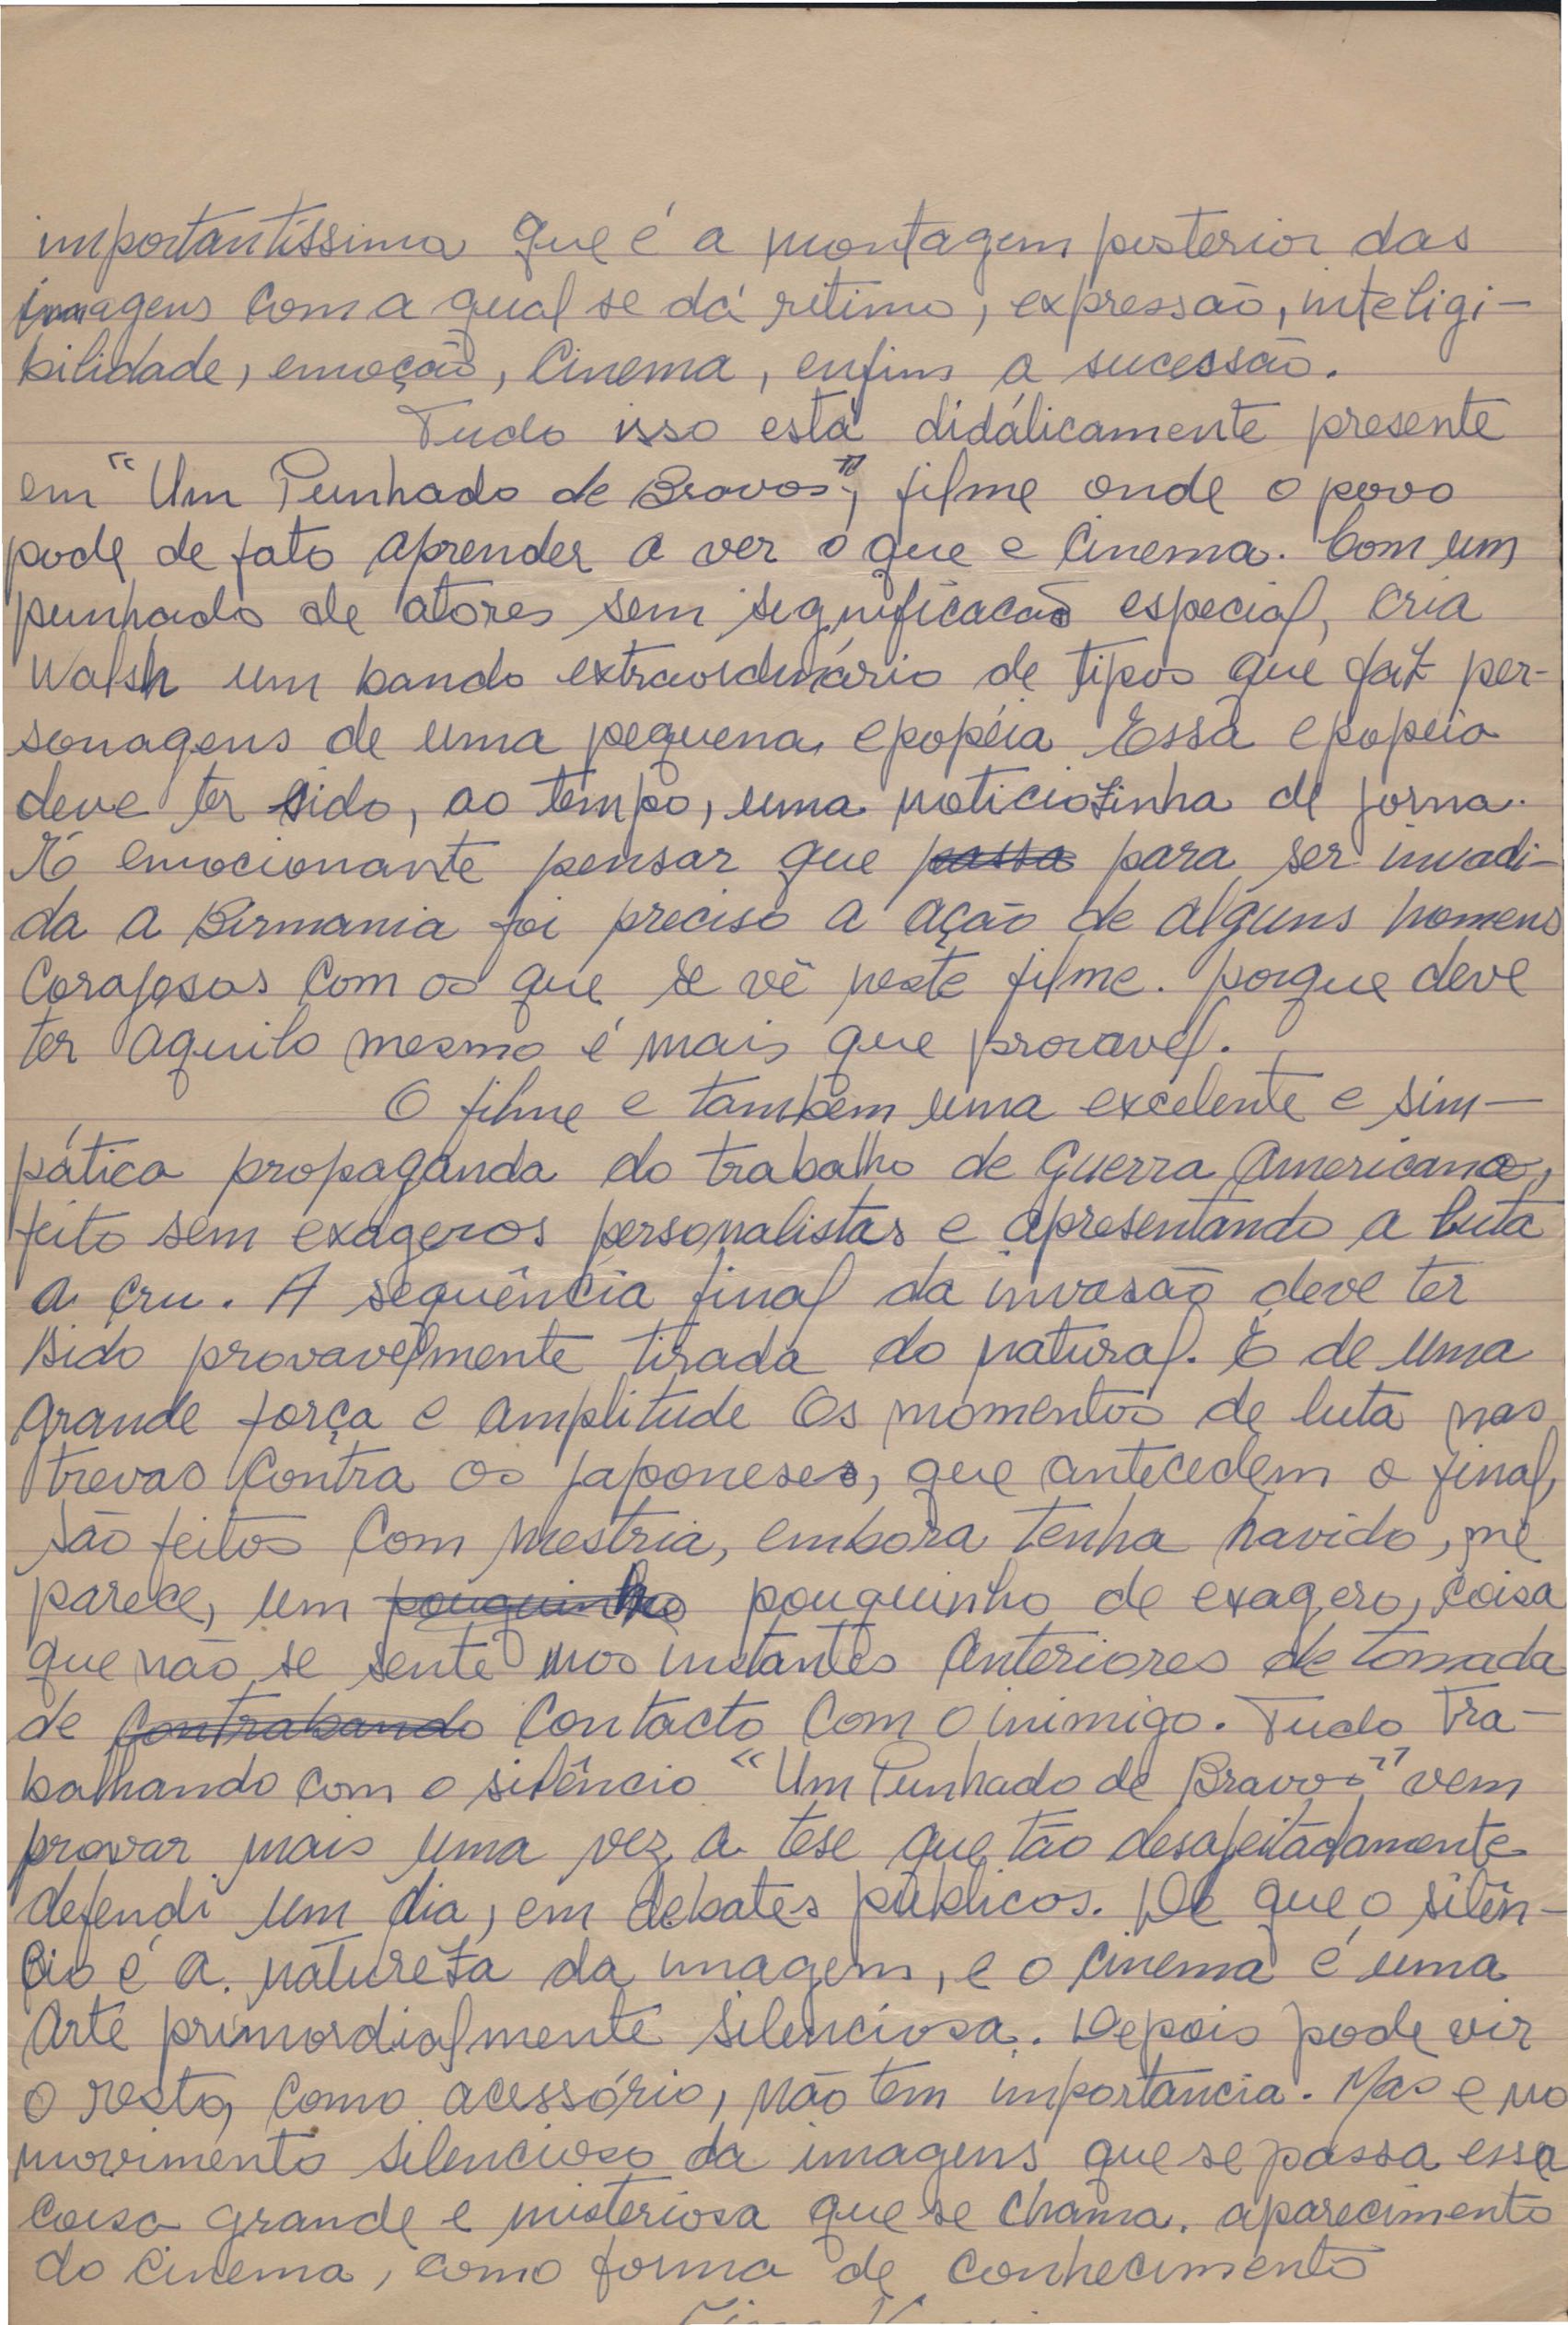 importantíssima que é a montagem posterior das
imagens com a qual se dá rítimo, expressão, inteligi-
bilidade, emoção, Cinema, enfim a sucessão.
Tudo isso está didálicamente presente
em "Um Punhado de Bravos", filme onde o povo
pode de fato aprender a ver o que e Cinema. Com um
punhado de atores sem significacão especial, cria
Walsh um bando extraordinário de tipos que faz per-
sonagens de uma pequena epopéia Essa epopeia
deve ter sido, ao tempo, uma noticiozinha de jorna.
É emocionante pensar que passa para ser invadi-
da a Birmania foi preciso a ação de alguns homens
Corajosos Com os que se vê neste filme. porque deve
ter aquilo mesmo é mais que provavel.
O filme e também uma excelente e sim-
pática propaganda do trabalho de Guerra Americano,
feito sem exageros personalistas e apresentando a luta
a cru. A sequência final da invasão deve ter
sido provavelmente tirada do natural. É de uma
grande força e amplitude Os momentos de luta nas
trevas Contra os japoneses, que antecedem o final,
são feitos Com mestria, embora tenha havido, me
parece, um pouquinho pouquinho de exagero, coisa
que não se sente nos instantes anteriores de tomada
de contrabando Contacto Com o inimigo. Tudo Tra-
balhando com o silêncio "Um Punhado de Bravos" vem
provar mais uma vez a tese que tão desafeitadamente
defendi um dia, em debates públicos. De que o silên-
cio é a natureza da imagem, e o cinema é uma
Arte primordialmente silenciosa. Depois pode vir
o resto, como acessório, não tem importância. Mas e no
movimento silencioso da imagens que se passa essa
coisa grande e misteriosa que se chama. aparecimento
do Cinema, como forma de conhecimento